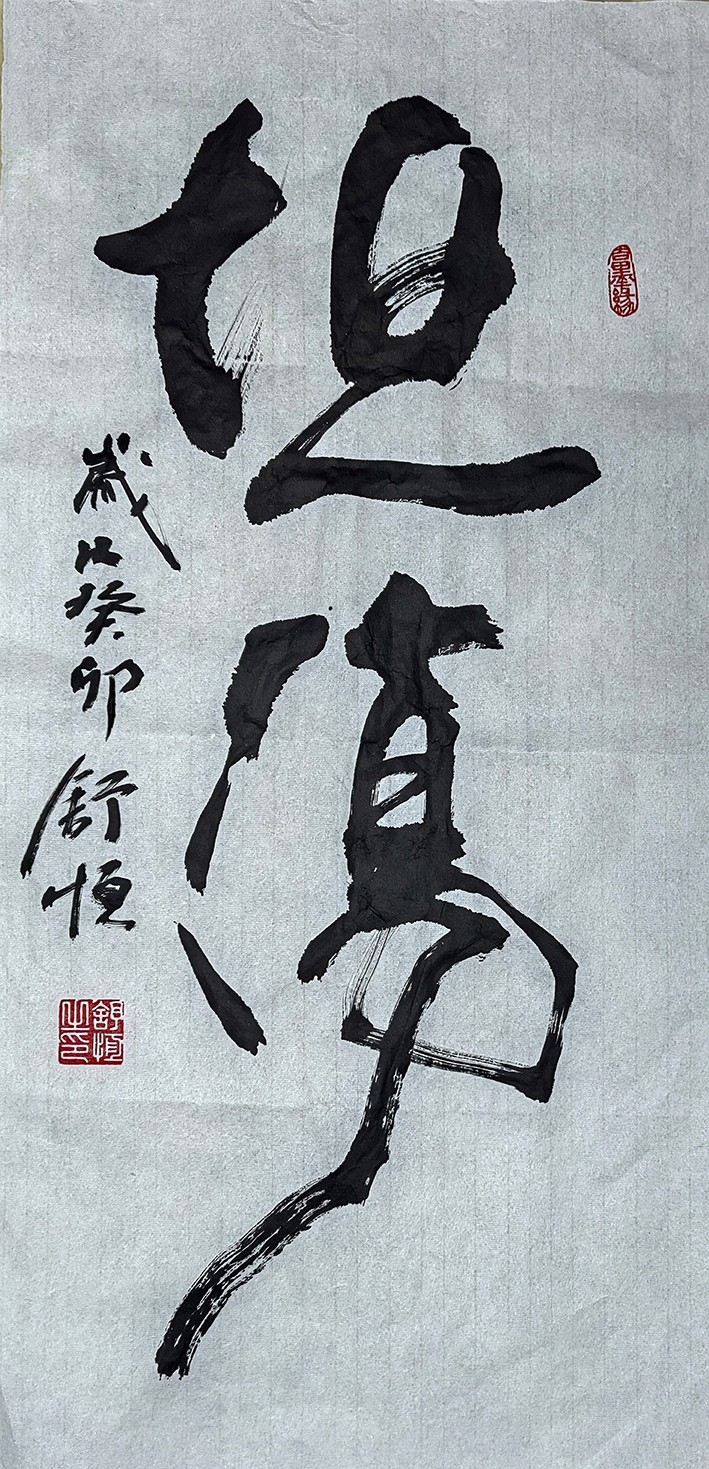 坦蕩
歲次癸卯舒恒
舒恒之印